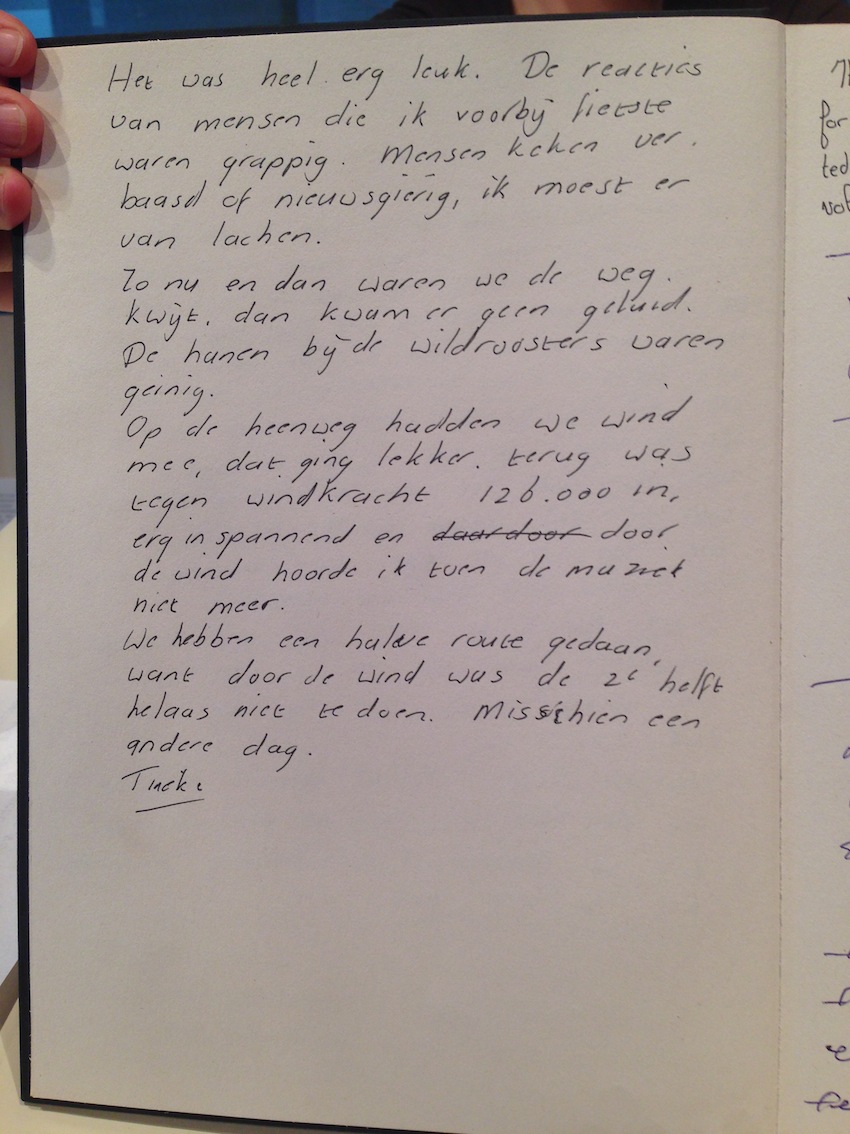 Het was heel erg leuk. De reacties
van mensen die ik voorbij fietste
waren grappig. Mensen keken ver.
baasd of nieuwsgierig, ik moest er
van lachen.
Zo nu en dan waren we de weg.
kwijt, dan kwam er geen geluid.
De hanen bij de wildroosters waren
geinig.
Op de heenweg hadden we wind
mee, dat ging lekker. terug was
tegen windkracht 126.000 in,
erg inspannend en daardoor door
de wind hoorde ik toen de muziek
niet meer.
We hebben een halve route gedaan,
want door de wind was de 2e helft
helaas niet te doen. Misschien een
andere dag.
for
ted